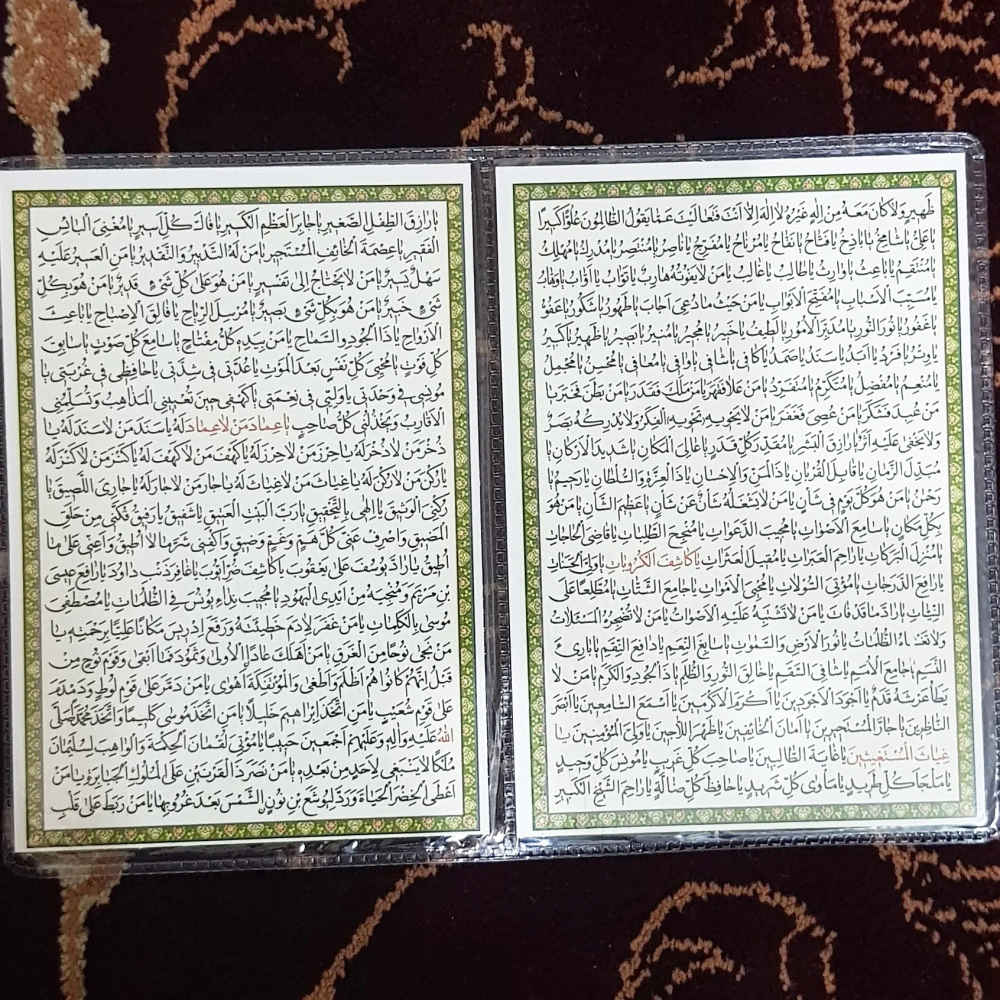 ظَهِيرٍ وَلَا كَانَ مَعَهُ مِنْ إِلَهٍ غَيْرُهُ لَا إِلَهَ إِلَّا أَنْتَ فَتَعَالَيْتَ عَمَّا يَقُولُ الظَّالِمُونَ عُلُوًّا كَبِيرًا
يَا عَلِيُّ يَا شَامِخُ يَا بَاذِخُ يَا فَتَّاحُ يَا نَفَّاحُ يَا مُرْتَاحُ يَا مُفَرِّجُ يَا نَاصِرُ يَا مُنْتَصِرُ يَا مُدْرِكُ يَا مُهْلِكُ
يَا مُنْتَقِمُ يَا بَاعِثُ يَا وَارِثُ يَا طَالِبُ يَا غَالِبُ يَا مَنْ لَا يَفُوتُهُ هَارِبٌ يَا تَوَّابُ يَا أَوَّابُ يَا وَهَّابُ
يَا مُسَبِّبَ الْأَسْبَابِ يَا مُفَتِّحَ الْأَبْوَابِ يَا مَنْ حَيْثُ مَا دُعِيَ أَجَابَ يَا طَهُورُ يَا شَكُورُ يَا عَفُوُّ
يَا غَفُورُ يَا نُورَ النُّورِ يَا مُدَبِّرَ الْأُمُورِ يَا لَطِيفُ يَا خَبِيرُ يَا مُجِيرُ يَا مُنِيرُ يَا بَصِيرُ يَا ظَهِيرُ يَا كَبِيرُ
يَا وِتْرُ يَا فَرْدُ يَا أَبَدُ يَا سَنَدُ يَا صَمَدُ يَا كَافِي يَا شَافِي يَا وَافِي يَا مُعَافِي يَا مُحْسِنُ يَا مُجْمِلُ
يَا مُنْعِمُ يَا مُفْضِلُ يَا مُتَكَرِّمُ يَا مُتَفَرِّدُ يَا مَنْ عَلَا فَقَهَرَ يَا مَنْ مَلَكَ فَقَدَرَ يَا مَنْ بَطَنَ فَخَبَرَ يَا
مَنْ عُبِدَ فَشَكَرَ يَا مَنْ عُصِيَ فَغَفَرَ يَا مَنْ لَا يَحْوِيهِ تَحْوِيهِ الْفِكَرُ وَلَا يُدْرِكُهُ بَصَرٌ
وَلَا يَخْفَى عَلَيْهِ أَثَرٌ يَا رَازِقَ الْبَشَرِ يَا مُقَدِّرَ كُلِّ قَدَرٍ يَا عَالِيَ الْمَكَانِ يَا شَدِيدَ الْأَرْكَانِ يَا
مُبَدِّلَ الزَّمَانِ يَا قَابِلَ الْقُرْبَانِ يَا ذَا الْمَنِّ وَالْإِحْسَانِ يَا ذَا الْعِزَّةِ وَالسُّلْطَانِ يَا رَحِيمُ يَا
رَحْمَنُ يَا مَنْ هُوَ كُلَّ يَوْمٍ فِي شَأْنٍ يَا مَنْ لَا يَشْغَلُهُ شَأْنٌ عَنْ شَأْنٍ يَا عَظِيمَ الشَّأْنِ يَا مَنْ هُوَ
بِكُلِّ مَكَانٍ يَا سَامِعَ الْأَصْوَاتِ يَا مُجِيبَ الدَّعَوَاتِ يَا مُنْجِحَ الطَّلِبَاتِ يَا قَاضِيَ الْحَاجَاتِ
يَا مُنْزِلَ الْبَرَكَاتِ يَا رَاحِمَ الْعَبَرَاتِ يَا مُقِيلَ الْعَثَرَاتِ يَا كَاشِفَ الْكُرُبَاتِ يَا وَلِيَّ الْحَسَنَاتِ
يَا رَافِعَ الدَّرَجَاتِ يَا مُؤْتِيَ السُّؤْلَاتِ يَا مُحْيِيَ الْأَمْوَاتِ يَا جَامِعَ الشَّتَاتِ يَا مُطَّلِعًا عَلَى
النِّيَّاتِ يَا رَادَّ مَا قَدْ فَاتَ يَا مَنْ لَا تَشْتَبِهُ عَلَيْهِ الْأَصْوَاتُ يَا مَنْ لَا تُضْجِرُهُ الْمَسْأَلَاتُ
وَلَا تَغْشَاهُ الظُّلُمَاتُ يَا نُورَ الْأَرْضِ وَالسَّمَوَاتِ يَا سَابِغَ النِّعَمِ يَا دَافِعَ النِّقَمِ يَا بَارِئَ
النَّسَمِ يَا جَامِعَ الْأُمَمِ يَا شَافِيَ السَّقَمِ يَا خَالِقَ النُّورِ وَالظُّلَمِ يَا ذَا الْجُودِ وَالْكَرَمِ يَا مَنْ لَا
يَطَأُ عَرْشَهُ قَدَمٌ يَا أَجْوَدَ الْأَجْوَدِينَ يَا أَكْرَمَ الْأَكْرَمِينَ يَا أَسْمَعَ السَّامِعِينَ يَا أَبْصَرَ
النَّاظِرِينَ يَا جَارَ الْمُسْتَجِيرِينَ يَا أَمَانَ الْخَائِفِينَ يَا ظَهْرَ اللَّاجِينَ يَا وَلِيَّ الْمُؤْمِنِينَ يَا
غِيَاثَ الْمُسْتَغِيثِينَ يَا غَايَةَ الطَّالِبِينَ يَا صَاحِبَ كُلِّ غَرِيبٍ يَا مُونِسَ كُلِّ وَحِيدٍ
يَا مَلْجَأَ كُلِّ طَرِيدٍ يَا مَأْوَى كُلِّ شَرِيدٍ يَا حَافِظَ كُلِّ ضَالَّةٍ يَا رَاحِمَ الشَّيْخِ الْكَبِيرِ
يَا رَازِقَ الطِّفْلِ الصَّغِيرِ يَا جَابِرَ الْعَظْمِ الْكَسِيرِ يَا فَاكَّ كُلِّ أَسِيرٍ يَا مُغْنِيَ الْبَائِسِ
الْفَقِيرِ يَا عِصْمَةَ الْخَائِفِ الْمُسْتَجِيرِ يَا مَنْ لَهُ التَّدْبِيرُ وَالتَّقْدِيرُ يَا مَنِ الْعَسِيرُ عَلَيْهِ
سَهْلٌ يَسِيرٌ يَا مَنْ لَا يَحْتَاجُ إِلَى تَفْسِيرٍ يَا مَنْ هُوَ عَلَى كُلِّ شَيْءٍ قَدِيرٌ يَا مَنْ هُوَ بِكُلِّ
شَيْءٍ خَبِيرٌ يَا مَنْ هُوَ بِكُلِّ شَيْءٍ بَصِيرٌ يَا مُرْسِلَ الرِّيَاحِ يَا فَالِقَ الْإِصْبَاحِ يَا بَاعِثَ
الْأَرْوَاحِ يَا ذَا الْجُودِ وَالسَّمَاحِ يَا مَنْ بِيَدِهِ كُلُّ مِفْتَاحٍ يَا سَامِعَ كُلِّ صَوْتٍ يَا سَابِقَ
كُلِّ فَوْتٍ يَا مُحْيِيَ كُلِّ نَفْسٍ بَعْدَ الْمَوْتِ يَا عُدَّتِي فِي شِدَّتِي يَا حَافِظِي فِي غُرْبَتِي يَا
مُونِسِي فِي وَحْدَتِي يَا وَلِيِّي فِي نِعْمَتِي يَا كَهْفِي حِينَ تُعْيِينِي الْمَذَاهِبُ وَتُسَلِّمُنِي
الْأَقَارِبُ وَيَخْذُلُنِي كُلُّ صَاحِبٍ يَا عِمَادَ مَنْ لَا عِمَادَ لَهُ يَا سَنَدَ مَنْ لَا سَنَدَ لَهُ يَا
ذُخْرَ مَنْ لَا ذُخْرَ لَهُ يَا حِرْزَ مَنْ لَا حِرْزَ لَهُ يَا كَهْفَ مَنْ لَا كَهْفَ لَهُ يَا كَنْزَ مَنْ لَا كَنْزَ لَهُ
يَا رُكْنَ مَنْ لَا رُكْنَ لَهُ يَا غِيَاثَ مَنْ لَا غِيَاثَ لَهُ يَا جَارَ مَنْ لَا جَارَ لَهُ يَا جَارِيَ اللَّصِيقَ يَا
رُكْنِيَ الْوَثِيقَ يَا إِلَهِي بِالتَّحْقِيقِ يَا رَبَّ الْبَيْتِ الْعَتِيقِ يَا شَفِيقُ يَا رَفِيقُ فُكَّنِي مِنْ حَلَقِ
الْمَضِيقِ وَاصْرِفْ عَنِّي كُلَّ هَمٍّ وَغَمٍّ وَضِيقٍ وَاكْفِنِي شَرَّ مَا لَا أُطِيقُ وَأَعِنِّي عَلَى مَا
أُطِيقُ يَا رَادَّ يُوسُفَ عَلَى يَعْقُوبَ يَا كَاشِفَ ضُرِّ أَيُّوبَ يَا غَافِرَ ذَنْبِ دَاوُدَ يَا رَافِعَ عِيسَى
بْنِ مَرْيَمَ وَمُنْجِيَهُ مِنْ أَيْدِي الْيَهُودِ يَا مُجِيبَ نِدَاءِ يُونُسَ فِي الظُّلُمَاتِ يَا مُصْطَفِيَ
مُوسَى بِالْكَلِمَاتِ يَا مَنْ غَفَرَ لِآدَمَ خَطِيئَتَهُ وَرَفَعَ إِدْرِيسَ مَكَانًا عَلِيًّا بِرَحْمَتِهِ يَا
مَنْ نَجَّى نُوحًا مِنَ الْغَرَقِ يَا مَنْ أَهْلَكَ عَادًا الْأُولَى وَثَمُودَ فَمَا أَبْقَى وَقَوْمَ نُوحٍ مِنْ
قَبْلُ إِنَّهُمْ كَانُوا هُمْ أَظْلَمَ وَأَطْغَى وَالْمُؤْتَفِكَةَ أَهْوَى يَا مَنْ دَمَّرَ عَلَى قَوْمِ لُوطٍ وَدَمْدَمَ
عَلَى قَوْمِ شُعَيْبٍ يَا مَنِ اتَّخَذَ إِبْرَاهِيمَ خَلِيلًا يَا مَنِ اتَّخَذَ مُوسَى كَلِيمًا وَاتَّخَذَ مُحَمَّدًا صَلَّى
اللهُ عَلَيْهِ وَآلِهِ وَعَلَيْهِمْ أَجْمَعِينَ حَبِيبًا يَا مُؤْتِيَ لُقْمَانَ الْحِكْمَةَ وَالْوَاهِبَ لِسُلَيْمَانَ
مُلْكًا لَا يَنْبَغِي لِأَحَدٍ مِنْ بَعْدِهِ يَا مَنْ نَصَرَ ذَا الْقَرْنَيْنِ عَلَى الْمُلُوكِ الْجَبَابِرَةِ يَا مَنْ
أَعْطَى الْخِضْرَ الْحَيَاةَ وَرَدَّ لِيُوشَعَ بْنِ نُونٍ الشَّمْسَ بَعْدَ غُرُوبِهَا يَا مَنْ رَبَطَ عَلَى قَلْبِ